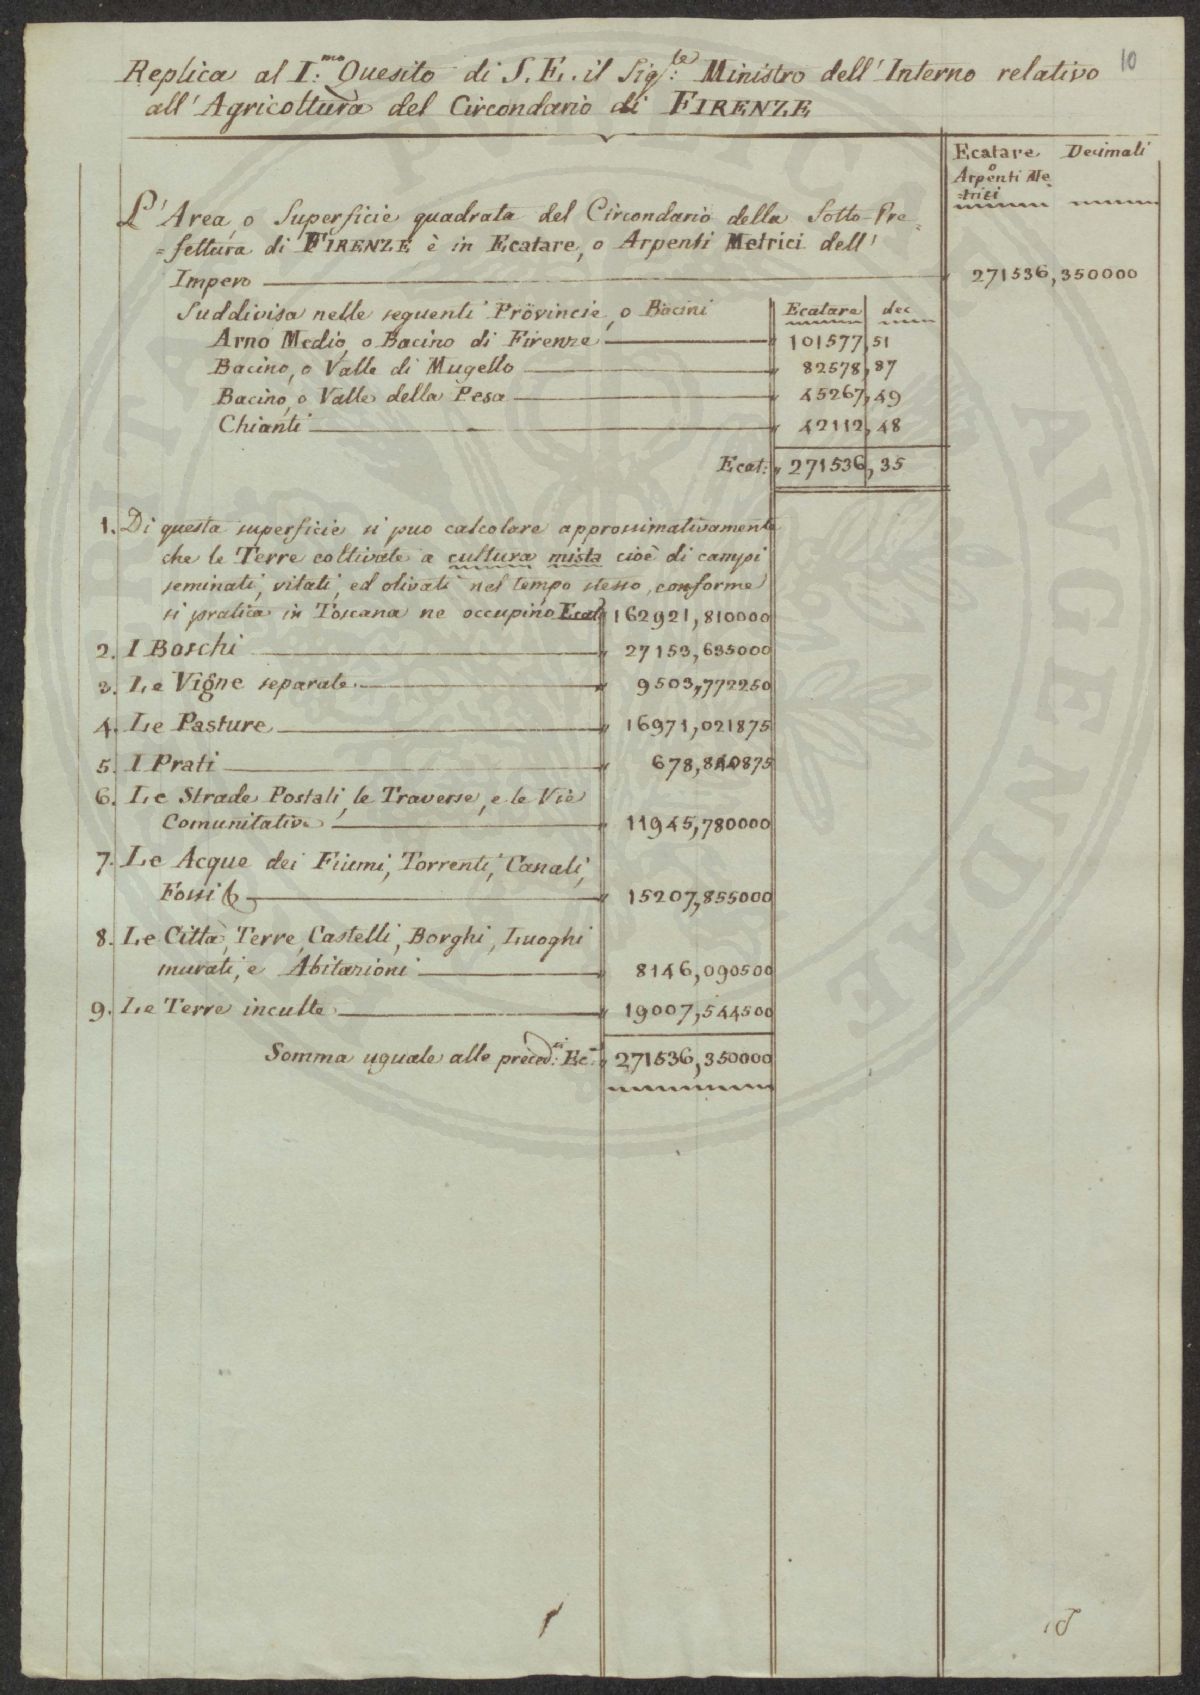 10
Replica al I.mo Quesito di S. E. il Sig.le Ministro dell'Interno relativo
all'Agricoltura del Circondario di FIRENZE
Ecatare Decimali
o
Arpenti Me
trici
L'Area, o Superficie quadrata del Circondario della Sotto-Pre=
=fettura di FIRENZE è in Ecatare, o Arpenti Metrici dell'
Impero 271536,350000
Suddivisa nelle seguenti Provincie, o Bacini Ecatare dec
Arno Medio, o Bacino di Firenze " 101577,51
Bacino, o Valle di Mugello " 82578,87
Bacino, o Valle della Pesa " 45267,49
Chianti " 42112,48
Ecat: " 271536,35
1. Di questa superficie si puo calcolare approssimativamente
che le Terre coltivate a cultura mista cioè di campi
seminati, vitati, ed olivati nel tempo stesso, conforme
si pratica in Toscana ne occupino Ecat. 162921,810000
2. I Boschi " 27153,635000
3. Le Vigne separate " 9503,772250
4. Le Pasture " 16971,021875
5. I Prati " 678,840875
6. Le Strade Postali, le Traverse, e le Vie
Comunitative " 11945,780000
7. Le Acque dei Fiumi, Torrenti, Canali,
Fossi " 15207,855000
8. Le Città, Terre, Castelli, Borghi, Luoghi
murati, e Abitazioni " 8146,090500
9. Le Terre inculte " 19007,544500
Somma uguale alle preced.ti Ec. " 271536,350000
PUBLICAE
AUGENDAE